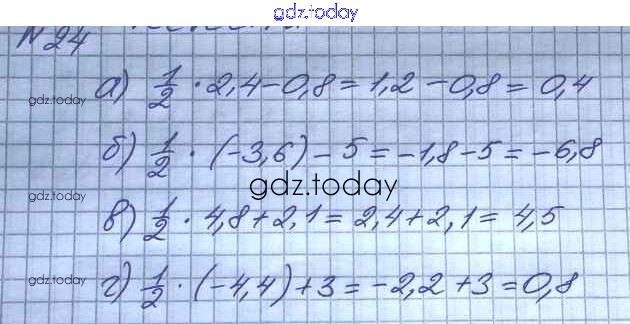 gdz.today
N 24
а) 1/2 · 2,4 - 0,8 = 1,2 - 0,8 = 0,4
gdz.today
gdz.today
б) 1/2 · (-3,6) - 5 = -1,8 - 5 = -6,8
gdz.today
gdz.today
gdz.today
в) 1/2 · 4,8 + 2,1 = 2,4 + 2,1 = 4,5
gdz.today
gdz.today
г) 1/2 · (-4,4) + 3 = -2,2 + 3 = 0,8